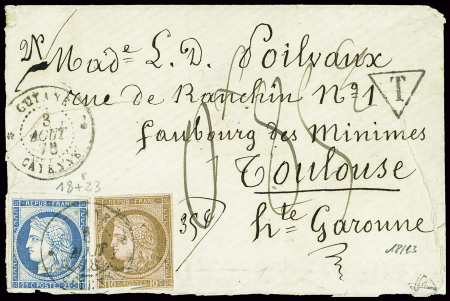 Made L. D. Poilvaux
rue de Ranchin No 1
faubourg des Minimes
Toulouse
hte Garonne
T
GUYANE
3
AOUT
78
CAYENNE
18+23
35c
REPUB. FRANC.
25 C. POSTES 25 C.
REPUB. FRANC.
10 C. POSTES 10 C.
18/23